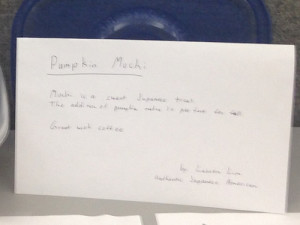 Pumpkin Mochi
Mochi is a sweet Japanese treat.
The addition of pumpkin makes it perfect for fall
Great with coffee
by
Authentic Japanese American